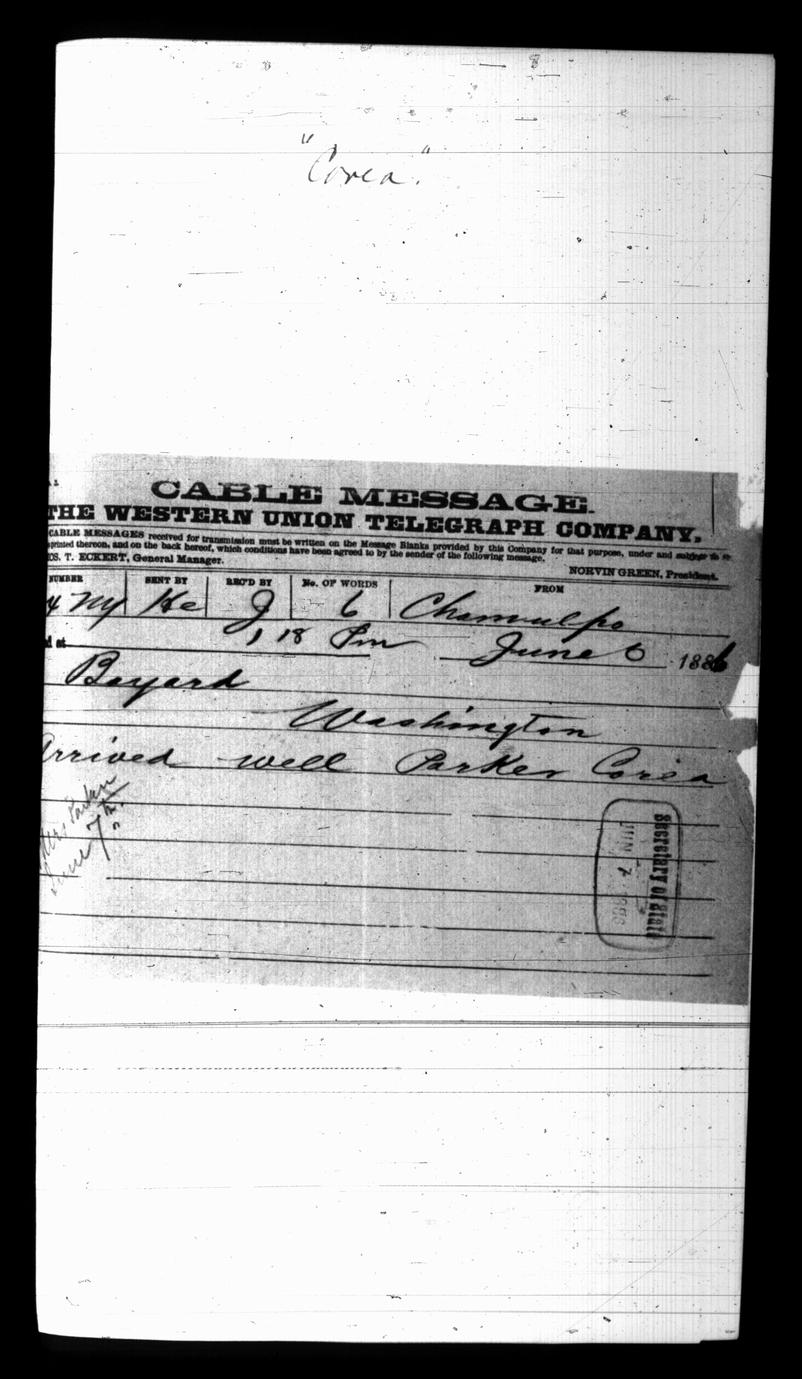 "Corea."
CABLE MESSAGE.
THE WESTERN UNION TELEGRAPH COMPANY.
CABLE MESSAGES received for transmission must be written on the Message Blanks provided by this Company for that purpose, under and subject to
printed thereon, and on the back hereof, which conditions have been agreed to by the sender of the following message.
OS. T. ECKERT, General Manager. NORVIN GREEN, President.
NUMBER SENT BY REC'D BY No. OF WORDS FROM
4 Ny He J 6 Chemulpo
d at 1 18 Pm June 6 1886
Bayard
Washington
Arrived well Parker Corea
Mrs Parker
June 7th.
Secretary of State
JUN 7 1886